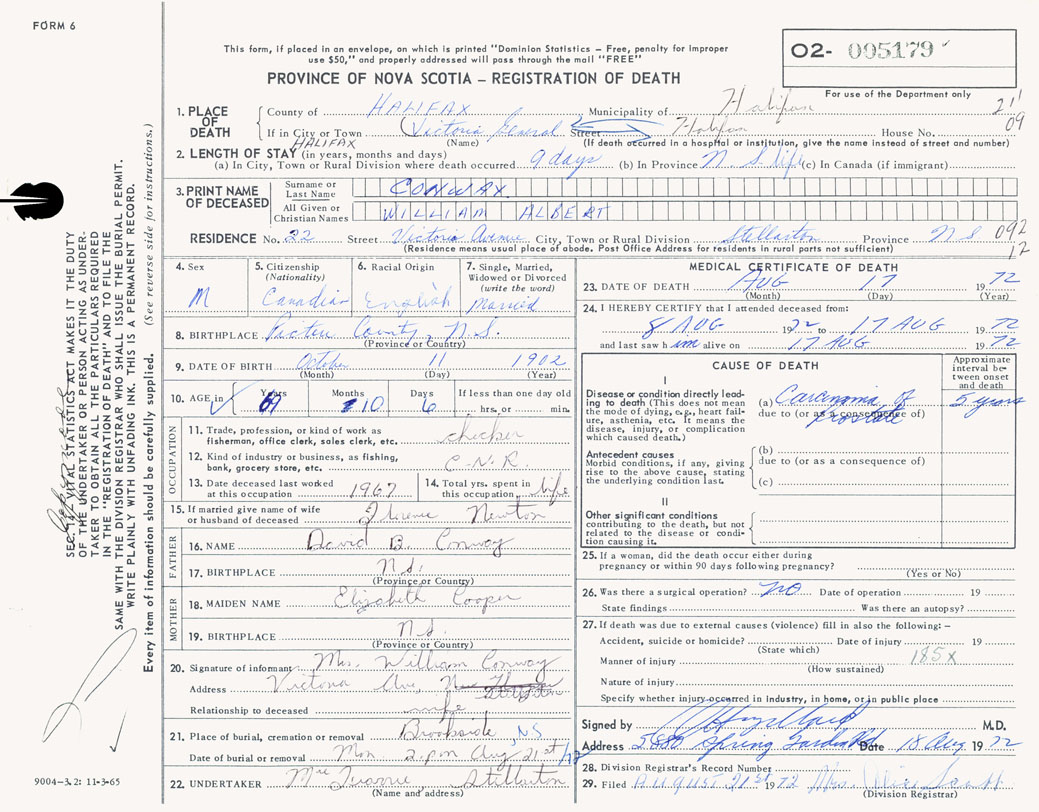 FORM 6
This form, if placed in an envelope, on which is printed "Dominion Statistics – Free, penalty for improper
use $50," and properly addressed will pass through the mail "FREE"
O2- 005179
PROVINCE OF NOVA SCOTIA – REGISTRATION OF DEATH
For use of the Department only
1. PLACE OF DEATH County of HALIFAX Municipality of Halifax 211
If in City or Town Victoria General Street Halifax House No. 09
HALIFAX (Name) (If death occurred in a hospital or institution, give the name instead of street and number)
2. LENGTH OF STAY (in years, months and days)
(a) In City, Town or Rural Division where death occurred 9 days (b) In Province N S life (c) In Canada (if immigrant)
3. PRINT NAME OF DECEASED Surname or Last Name CONWAY
All Given or Christian Names WILLIAM ALBERT
RESIDENCE No. 22 Street Victoria Avenue City, Town or Rural Division Stellarton Province N S 092
(Residence means usual place of abode. Post Office Address for residents in rural parts not sufficient) 12
SEC. 9 THE VITAL STATISTICS ACT MAKES IT THE DUTY
OF THE UNDERTAKER OR PERSON ACTING AS UNDER-
TAKER TO OBTAIN ALL THE PARTICULARS REQUIRED
IN THE "REGISTRATION OF DEATH" AND TO FILE THE
SAME WITH THE DIVISION REGISTRAR WHO SHALL ISSUE THE BURIAL PERMIT.
WRITE PLAINLY WITH UNFADING INK. THIS IS A PERMANENT RECORD.
Every item of information should be carefully supplied. (See reverse side for instructions.)
4. Sex M
5. Citizenship (Nationality) Canadian
6. Racial Origin English
7. Single, Married, Widowed or Divorced (write the word) Married
8. BIRTHPLACE Pictou County, N.S.
(Province or Country)
9. DATE OF BIRTH October 11 1902
(Month) (Day) (Year)
10. AGE in Years 69 Months 10 Days 6 If less than one day old
hrs. or min.
OCCUPATION
11. Trade, profession, or kind of work as
fisherman, office clerk, sales clerk, etc. checker
12. Kind of industry or business, as fishing,
bank, grocery store, etc. C.N.R.
13. Date deceased last worked
at this occupation 1967
14. Total yrs. spent in
this occupation life
15. If married give name of wife
or husband of deceased Florence Newton
FATHER
16. NAME David B. Conway
17. BIRTHPLACE N.S.
(Province or Country)
MOTHER
18. MAIDEN NAME Elizabeth Cooper
19. BIRTHPLACE N.S.
(Province or Country)
20. Signature of informant Mrs. William Conway
Address Victoria Ave, Stellarton
Relationship to deceased wife
21. Place of burial, cremation or removal Brookside, NS
Date of burial or removal Mon 2 p.m Aug 21st/72
22. UNDERTAKER Stellarton
(Name and address)
9004–3.2: 11-3-65
MEDICAL CERTIFICATE OF DEATH
23. DATE OF DEATH AUG 17 1972
(Month) (Day) (Year)
24. I HEREBY CERTIFY that I attended deceased from:
8 AUG 1972 to 17 AUG 1972
and last saw him alive on 17 AUG 1972
CAUSE OF DEATH
Approximate interval between onset and death
I
Disease or condition directly leading to death (This does not mean the mode of dying, e.g., heart failure, asthenia, etc. It means the disease, injury, or complication which caused death.)
(a) Carcinoma of prostate 5 years
due to (or as a consequence of)
Antecedent causes
Morbid conditions, if any, giving rise to the above cause, stating the underlying condition last.
(b)
due to (or as a consequence of)
(c)
II
Other significant conditions
contributing to the death, but not
related to the disease or condi-
tion causing it.
25. If a woman, did the death occur either during
pregnancy or within 90 days following pregnancy?
(Yes or No)
26. Was there a surgical operation? NO Date of operation 19
State findings Was there an autopsy?
27. If death was due to external causes (violence) fill in also the following: –
Accident, suicide or homicide? Date of injury 19
(State which)
Manner of injury 185X
(How sustained)
Nature of injury
Specify whether injury occurred in industry, in home, or in public place
Signed by M.D.
Address 5880 Spring Garden Rd Date 18 Aug 1972
28. Division Registrar's Record Number
29. Filed August 21st 1972 Mrs.
(Division Registrar)